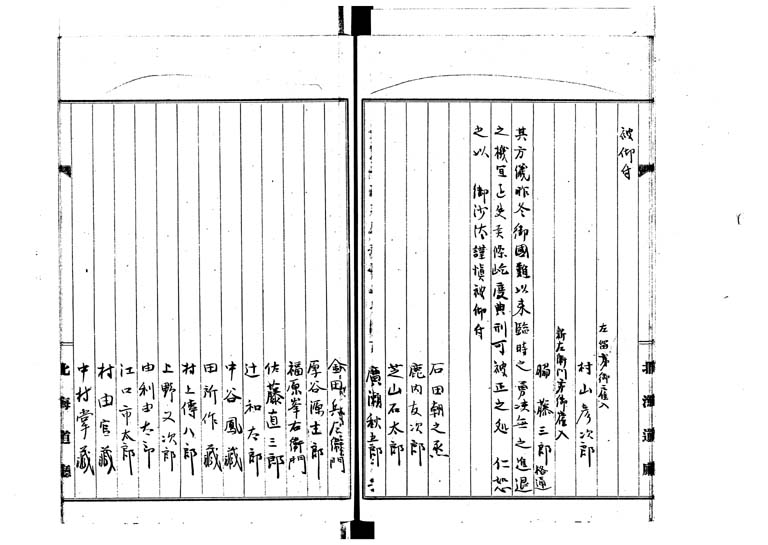 被仰付
左留弟御雇入
村山彦次郎
新左衛門弟御雇入
藤三郎 格通
其方儀昨冬御國難以来臨時之勇決無之進退
之機宜を失其條屹度典刑可被正之処 仁恕
之以 御沙汰謹慎被仰付
石田朝之丞
鹿内友次郎
芝山石太郎
廣瀬秋五郎
北海道廳
金田兵左衛門
厚谷源吉郎
福原峯右衛門
佐藤直三郎
辻和太郎
中谷鳳藏
田所作藏
村上傳八郎
上野又次郎
由利由太郎
江口市太郎
村由官藏
中村掌藏
北海道廳